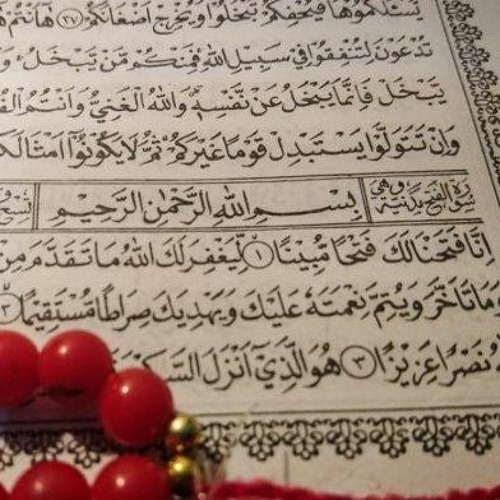 يَسْـَٔلْكُمُوهَا فَيُحْفِكُمْ تَبْخَلُوا وَيُخْرِجْ اَضْغَانَكُمْ ﴿٣٧﴾ هَٓا اَنْتُمْ
تُدْعَوْنَ لِتُنْفِقُوا فٖي سَبٖيلِ اللّٰهِ فَمِنْكُمْ مَنْ يَبْخَلُ
يَبْخَلْ فَاِنَّمَا يَبْخَلُ عَنْ نَفْسِهٖ وَاللّٰهُ الْغَنِيُّ وَاَنْتُمُ
وَاِنْ تَتَوَلَّوْا يَسْتَبْدِلْ قَوْمًا غَيْرَكُمْ ثُمَّ لَا يَكُونُٓوا اَمْثَالَكُمْ
سورة الفتح مدنية وهى
بِسْــمِ اللّٰهِ الرَّحْمٰنِ الرَّحٖيمِ
اِنَّا فَتَحْنَا لَكَ فَتْحًا مُبٖينًا ﴿١﴾ لِيَغْفِرَ لَكَ اللّٰهُ مَا تَقَدَّمَ مِنْ
وَمَا تَاَخَّرَ وَيُتِمَّ نِعْمَتَهُ عَلَيْكَ وَيَهْدِيَكَ صِرَاطًا مُسْتَقٖيمًا ﴿٢﴾
نَصْرًا عَزٖيزًا ﴿٣﴾ هُوَ الَّذٖٓي اَنْزَلَ